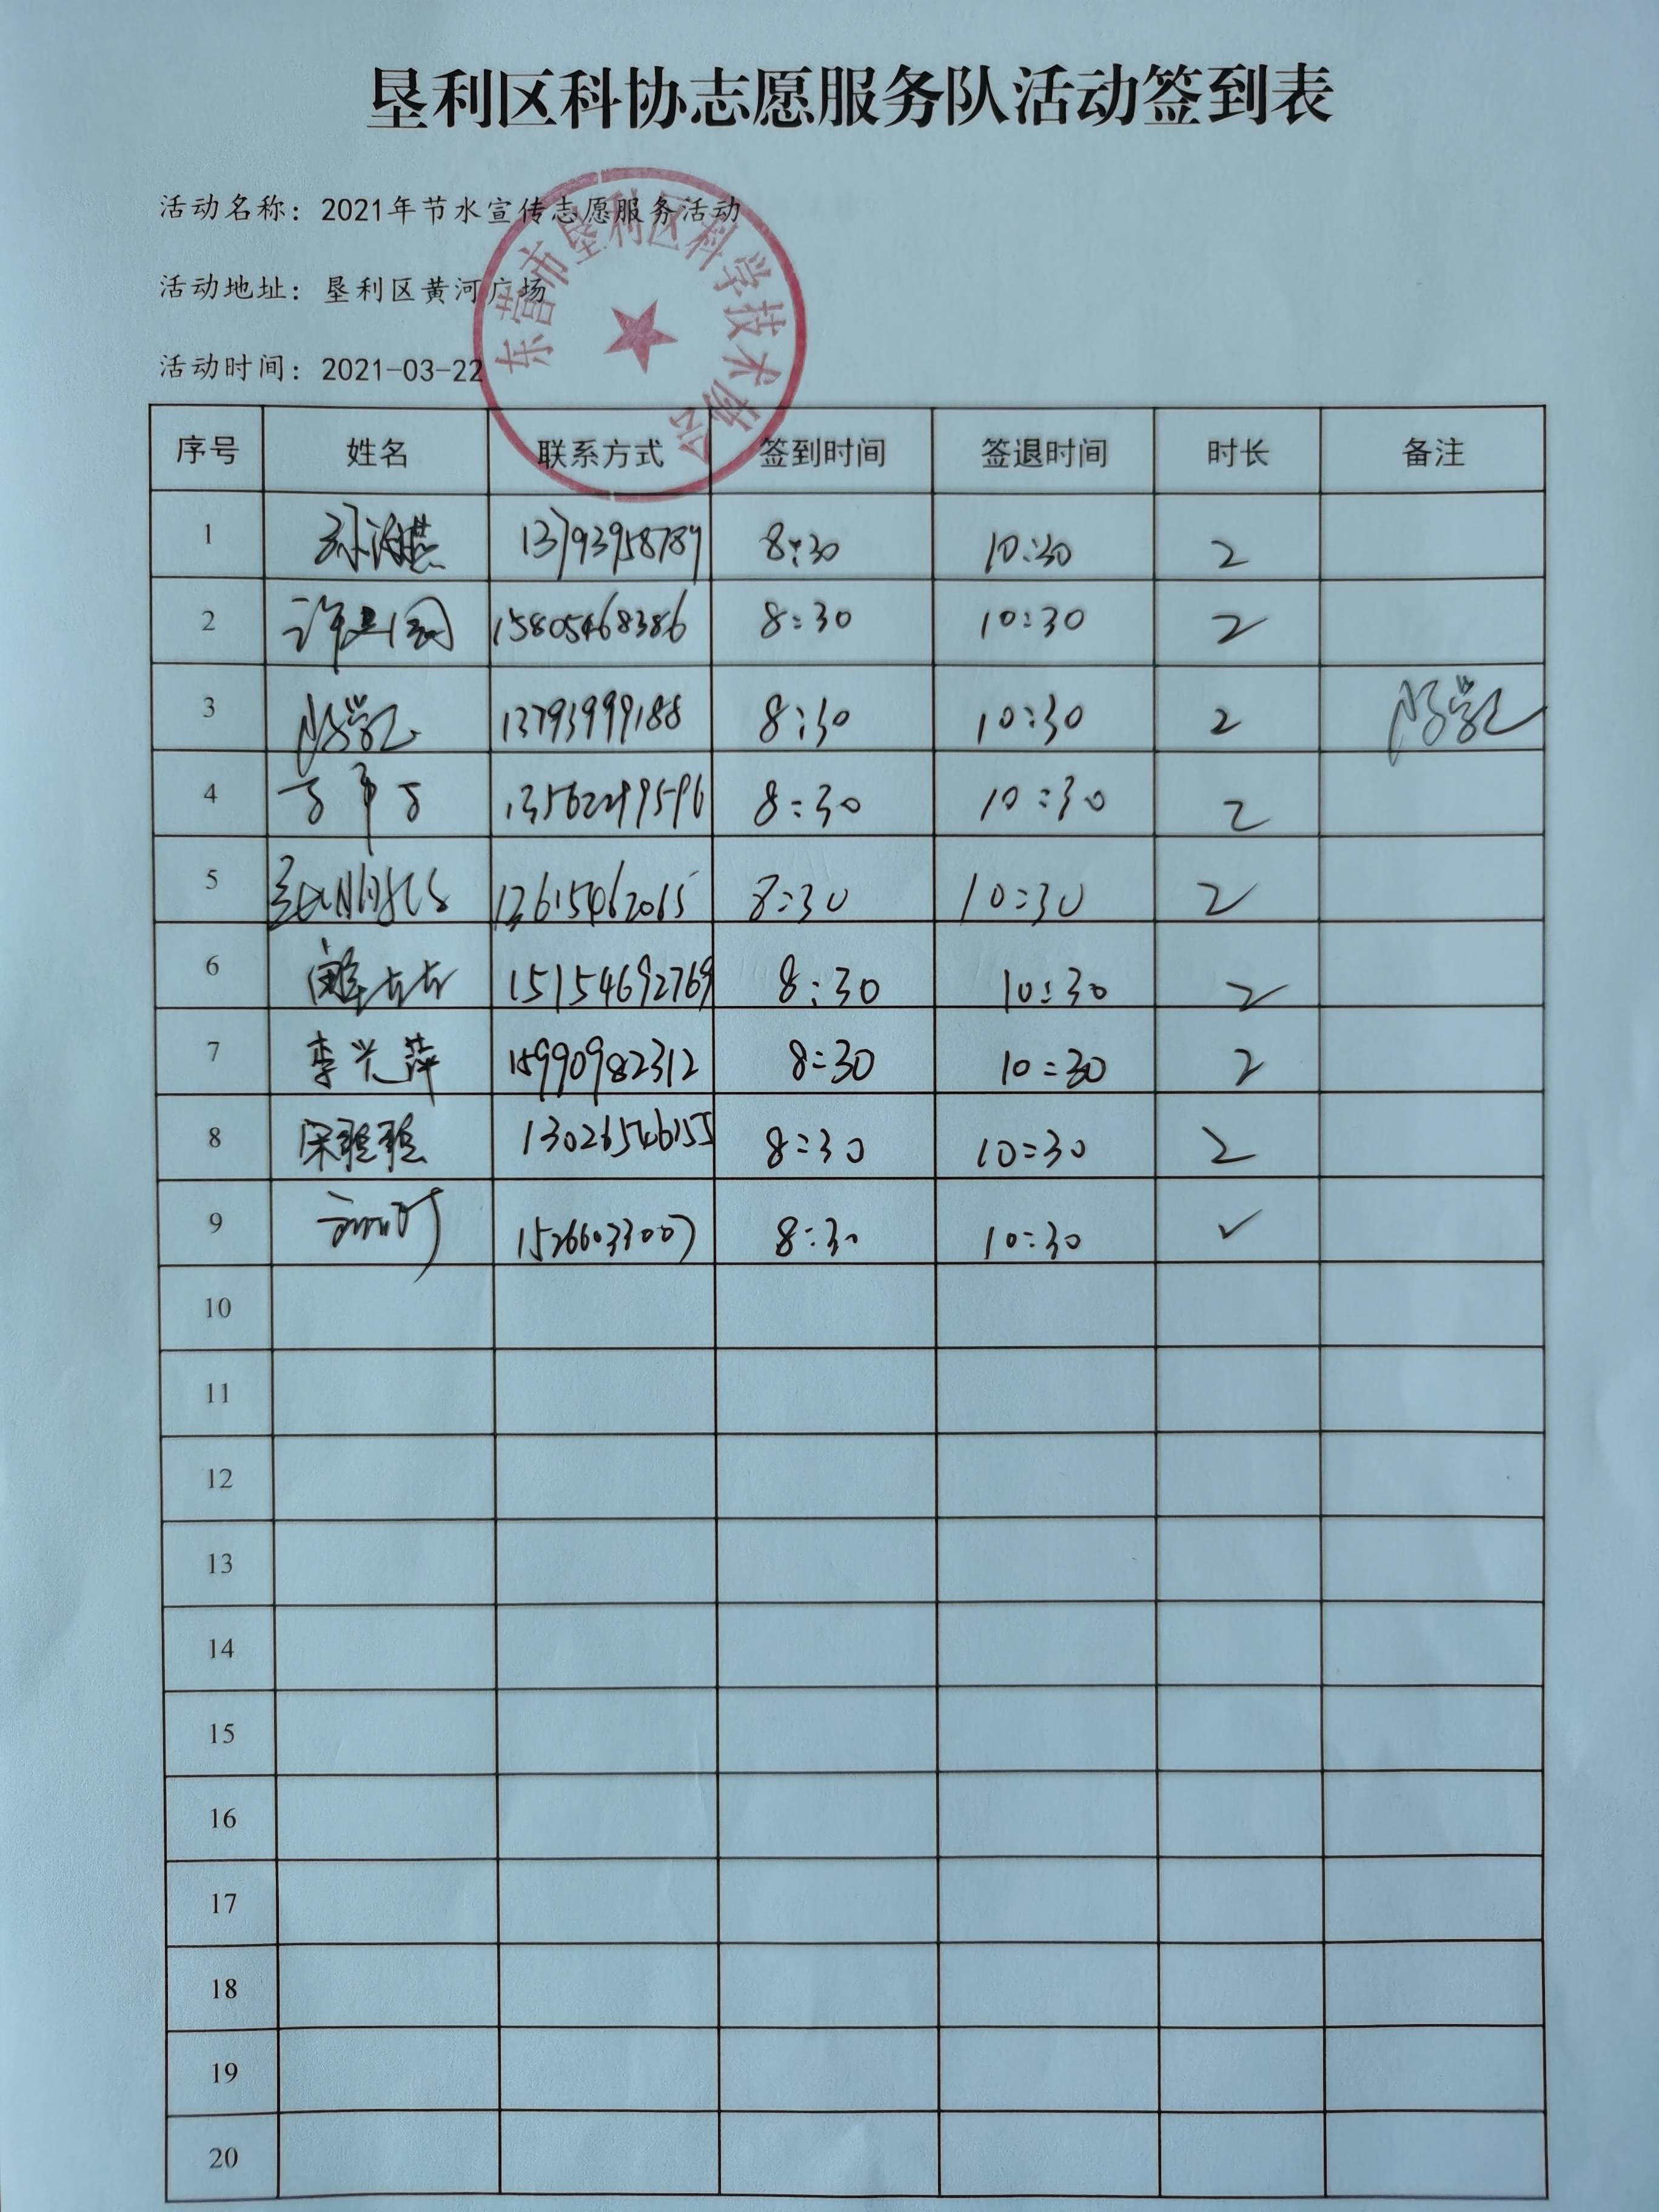 垦利区科协志愿服务队活动签到表
东营市垦利区科学技术协会
活动名称：2021年节水宣传志愿服务活动
活动地址：垦利区黄河广场
活动时间：2021-03-22
序号 姓名 联系方式 签到时间 签退时间 时长 备注
1 孙海燕 13793958789 8:30 10:30 2
2 许建国 15805468386 8:30 10:30 2
3 13793999188 8:30 10:30 2
4 8:30 10:30 2
5 8:30 10:30 2
6 15154692769 8:30 10:30 2
7 李兴萍 15990982312 8:30 10:30 2
8 8:30 10:30 2
9 15266033007 8:30 10:30
10
11
12
13
14
15
16
17
18
19
20